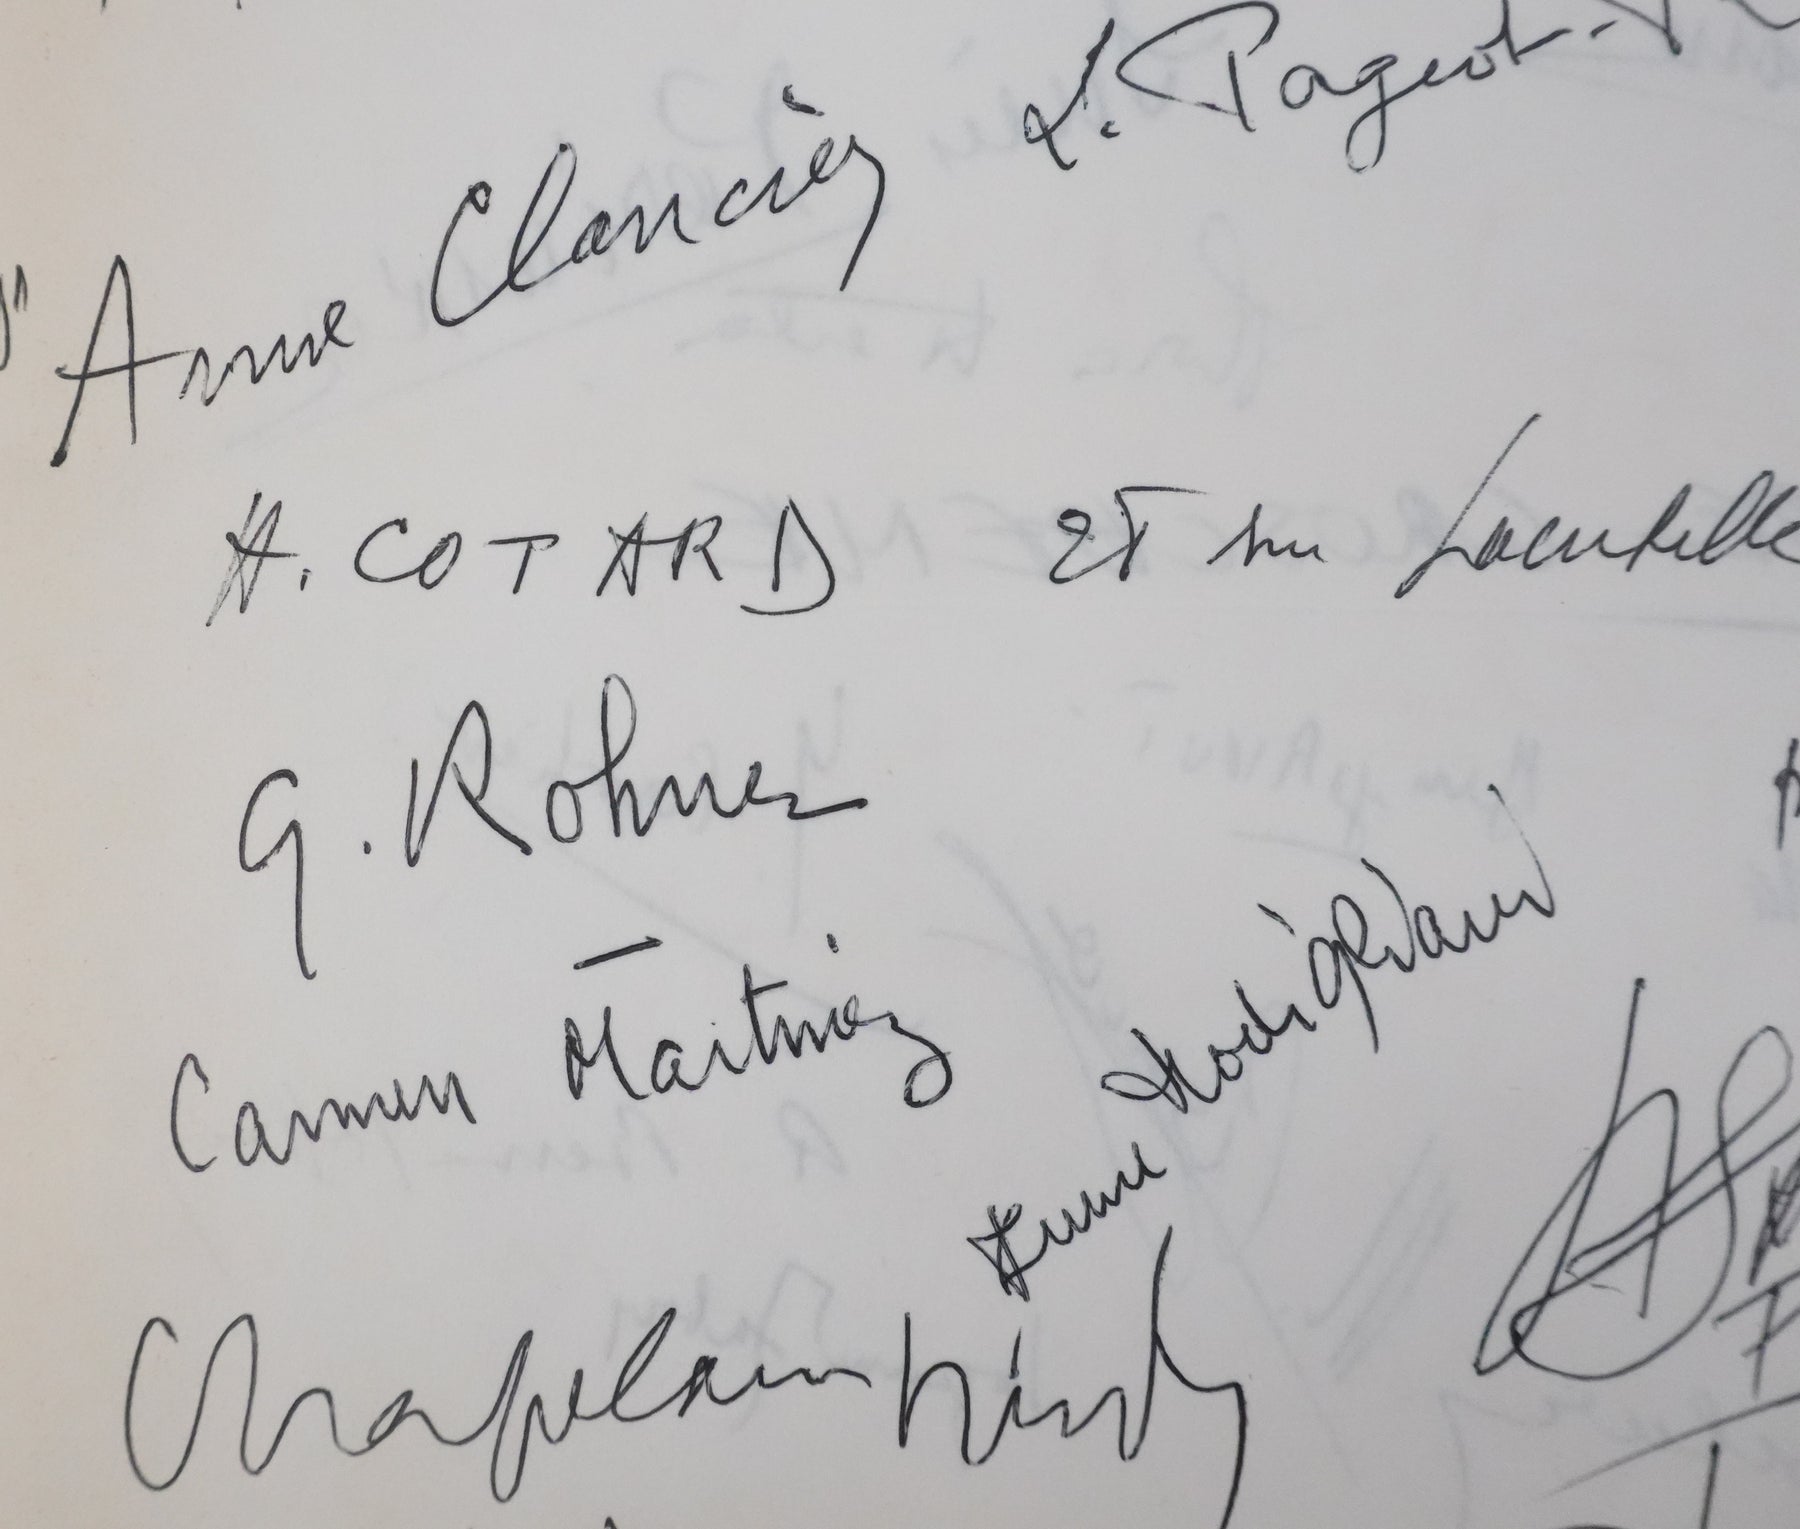 Anne Clancier L. Pageot-
H. COTARD et sa
G. Rohner
Carmen Martinez
Anne Modigliani
Chapelain Midy